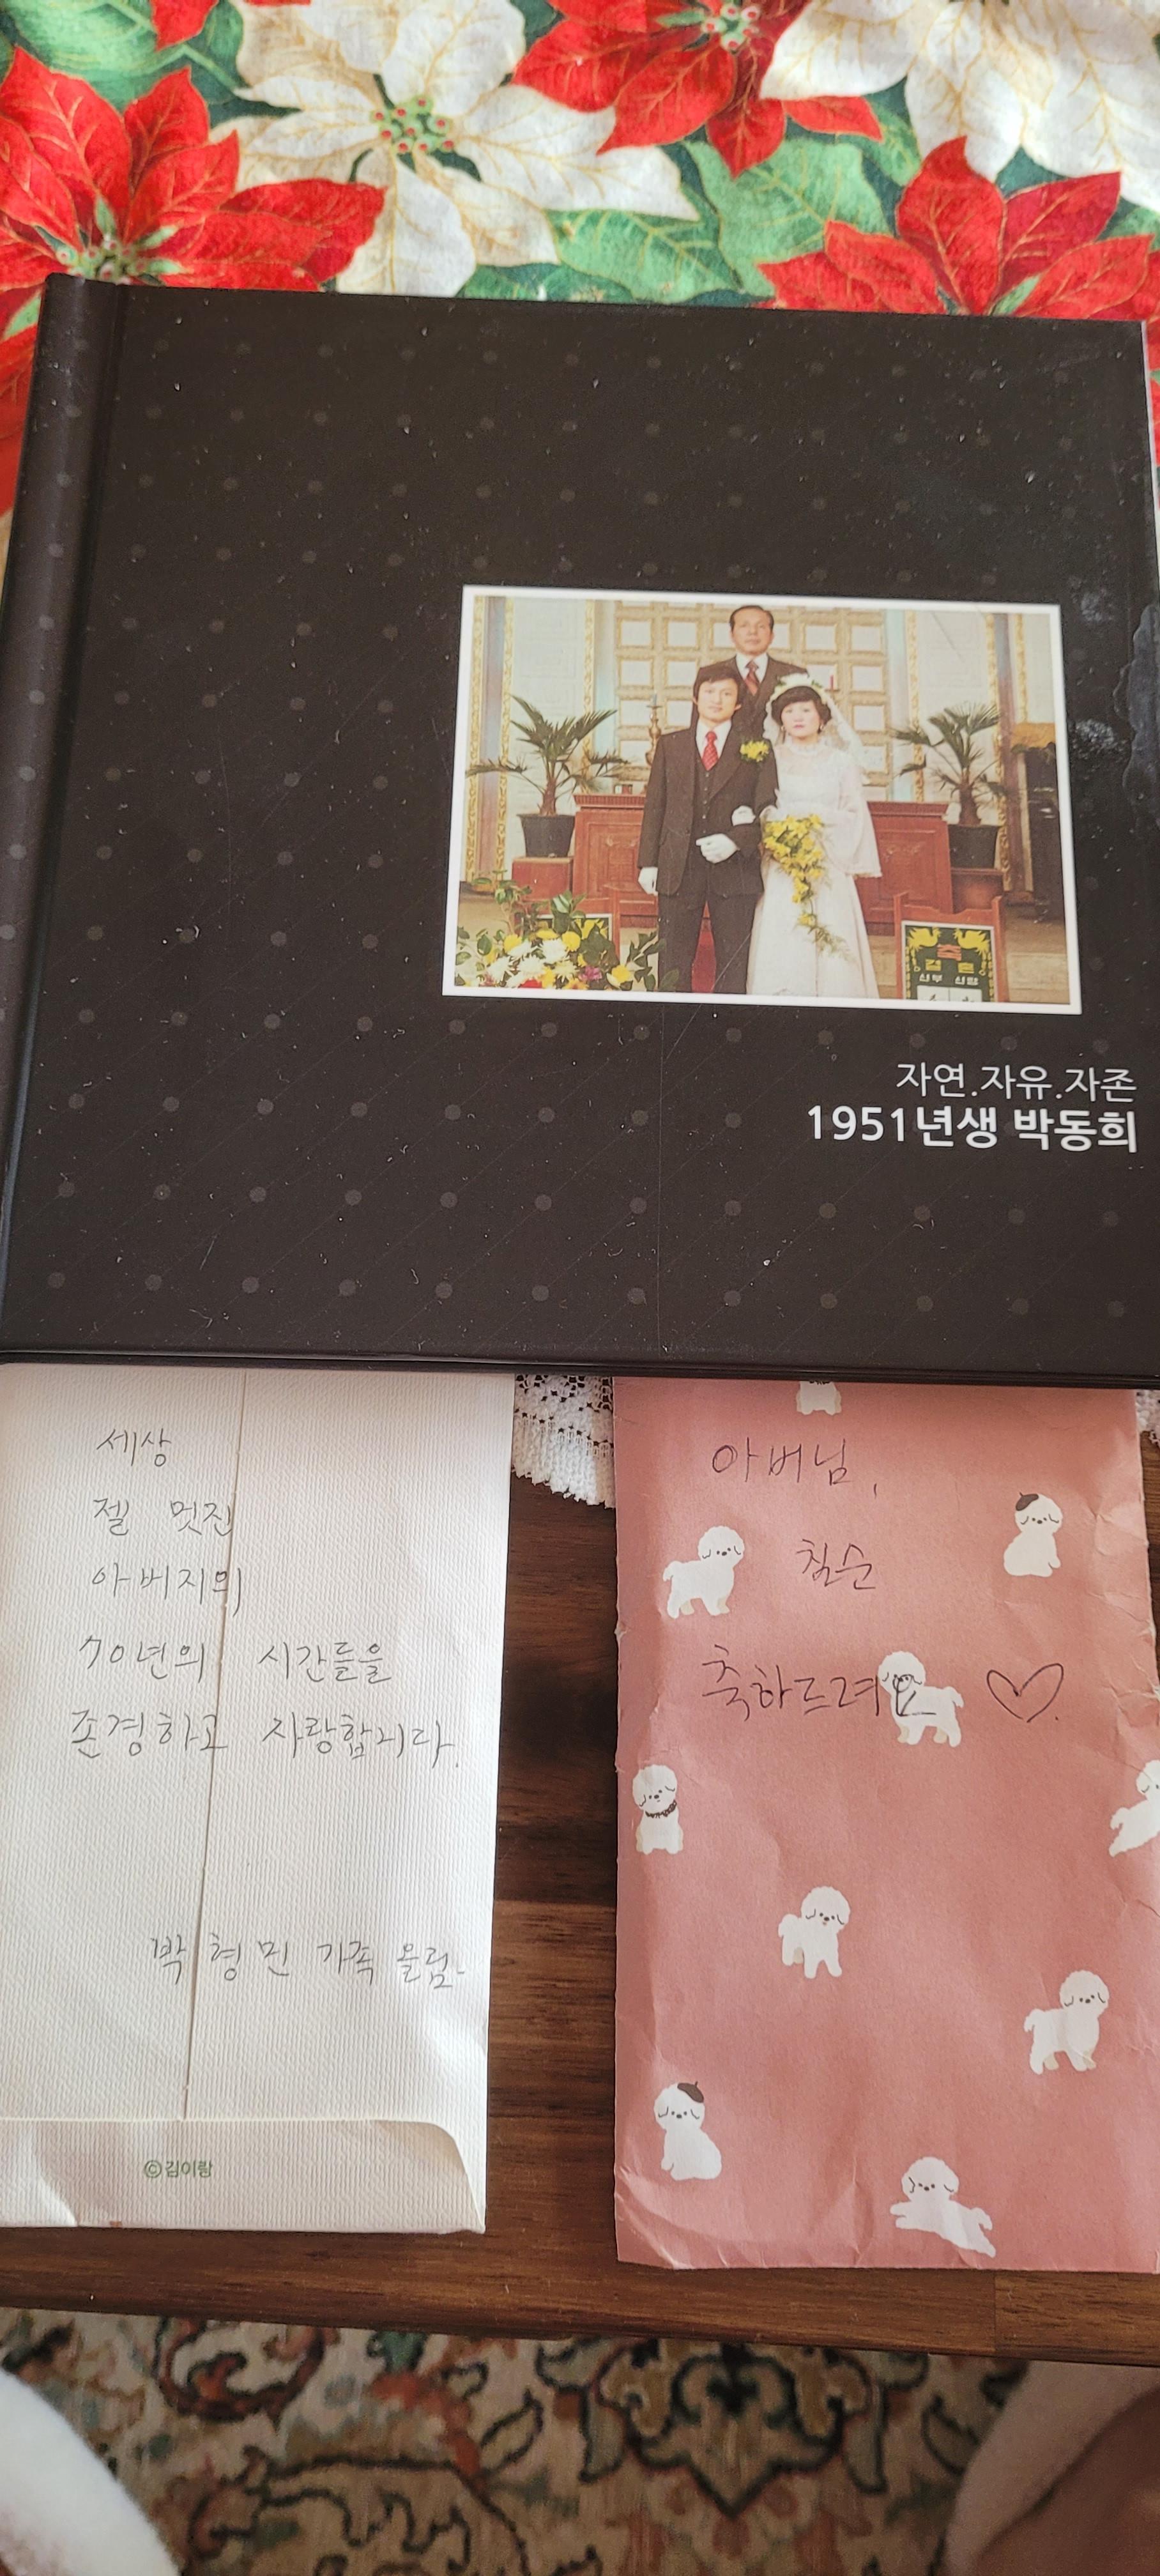 축
결혼
신부 신랑
자연.자유.자존
1951년생 박동희
세상
젤 멋진
아버지의
70년의 시간들을
존경하고 사랑합니다.
박형민 가족 올림.
©김이랑
아버님,
칠순
축하드려요 ♡.